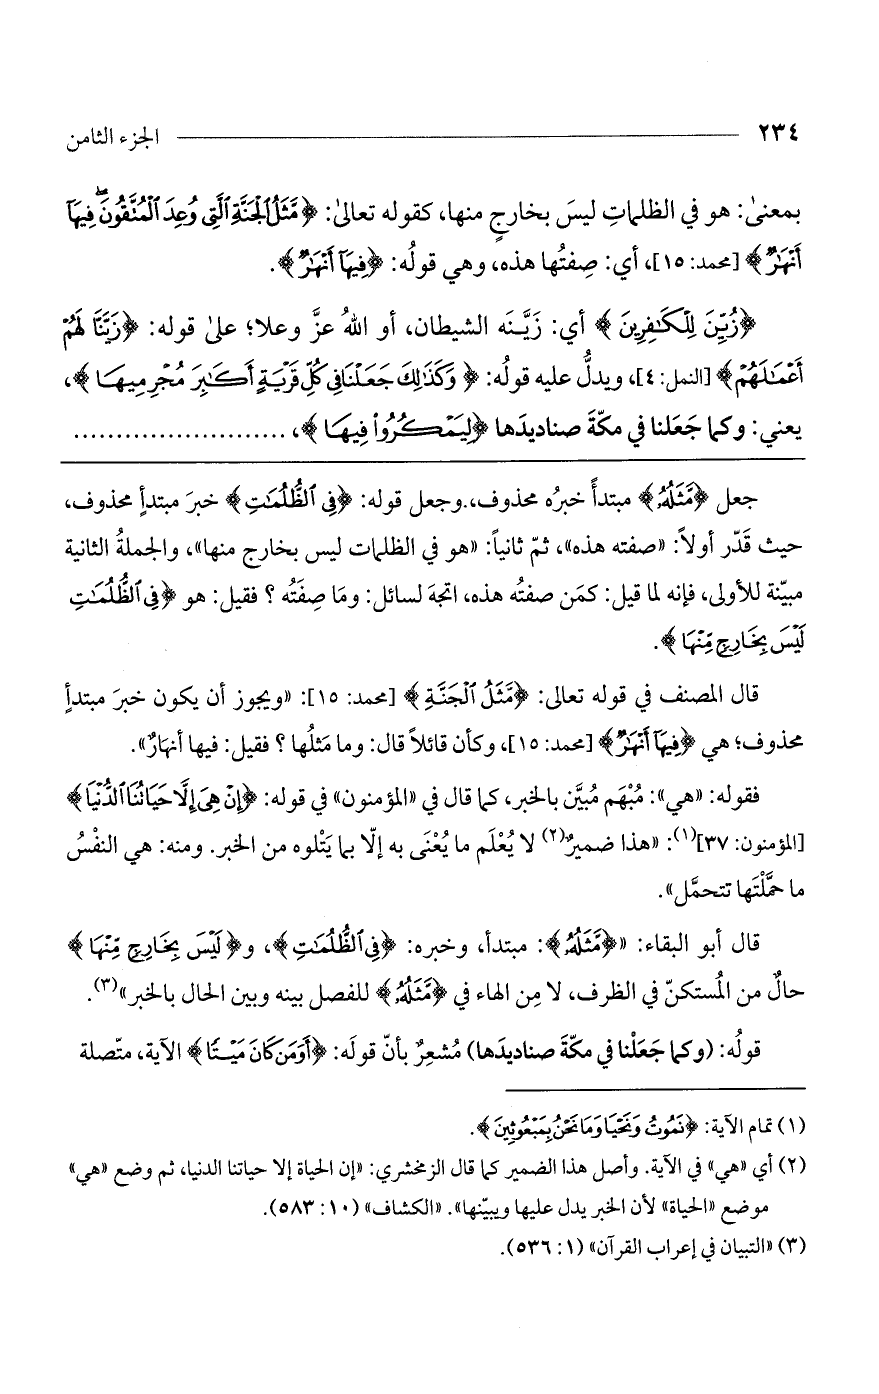 ٢٣٤ الجزء الثامن
بمعنىٰ: هو في الظلماتِ ليسَ بخارجٍ منها، كقوله تعالىٰ: ﴿مَّثَلُ الْجَنَّةِ الَّتِي وُعِدَ الْمُتَّقُونَ ۖ فِيهَا
أَنْهَارٌ﴾ [محمد: ١٥]، أي: صِفتُها هذه، وهي قولُه: ﴿فِيهَا أَنْهَارٌ﴾.
﴿زُيِّنَ لِلْكَافِرِينَ﴾ أي: زَيَّنَه الشيطان، أو اللهُ عزَّ وعلا؛ علىٰ قوله: ﴿زَيَّنَّا لَهُمْ
أَعْمَالَهُمْ﴾ [النمل: ٤]، ويدلُّ عليه قولُه: ﴿وَكَذَٰلِكَ جَعَلْنَا فِي كُلِّ قَرْيَةٍ أَكَابِرَ مُجْرِمِيهَا﴾،
يعني: وكما جَعَلنا في مكّةَ صناديدَها ﴿لِيَمْكُرُوا فِيهَا﴾، .........................
جعل ﴿مَّثَلُهُ﴾ مبتدأً خبرُه محذوف، وجعل قوله: ﴿فِي الظُّلُمَاتِ﴾ خبرَ مبتدأٍ محذوف،
حيث قَدّر أولاً: «صفته هذه»، ثمّ ثانياً: «هو في الظلمات ليس بخارج منها»، والجملةُ الثانية
مبيّنة للأولى، فإنه لما قيل: كمَن صفتُه هذه، اتجهَ لسائل: ومَا صِفَتُه ؟ فقيل: هو ﴿فِي الظُّلُمَاتِ
لَيْسَ بِخَارِجٍ مِّنْهَا﴾.
قال المصنف في قوله تعالى: ﴿مَّثَلُ الْجَنَّةِ﴾ [محمد: ١٥]: «ويجوز أن يكون خبرَ مبتدأٍ
محذوف؛ هي ﴿فِيهَا أَنْهَارٌ﴾ [محمد: ١٥]، وكأن قائلاً قال: وما مَثلُها ؟ فقيل: فيها أنهارٌ».
فقوله: «هي»: مُبْهَم مُبيَّن بالخبر، كما قال في «المؤمنون» في قوله: ﴿إِنْ هِيَ إِلَّا حَيَاتُنَا الدُّنْيَا﴾
[المؤمنون: ٣٧](١): «هذا ضميرٌ(٢) لا يُعْلَم ما يُعْنَى به إلّا بما يَتْلوه من الخبر. ومنه: هي النفْسُ
ما حمَّلْتَها تتحمَّل».
قال أبو البقاء: «﴿مَّثَلُهُ﴾: مبتدأ، وخبره: ﴿فِي الظُّلُمَاتِ﴾، و﴿لَيْسَ بِخَارِجٍ مِّنْهَا﴾
حالٌ من المُستكنّ في الظرف، لا مِن الهاء في ﴿مَّثَلُهُ﴾ للفصل بينه وبين الحال بالخبر»(٣).
قولُه: (وكما جَعَلْنا في مكّةَ صناديدَها) مُشعِرٌ بأنّ قولَه: ﴿أَوَمَن كَانَ مَيْتًا﴾ الآية، متّصلة
(١) تمام الآية: ﴿نَمُوتُ وَنَحْيَا وَمَا نَحْنُ بِمَبْعُوثِينَ﴾.
(٢) أي «هي» في الآية. وأصل هذا الضمير كما قال الزمخشري: «إن الحياة إلا حياتنا الدنيا، ثم وضع «هي»
موضع «الحياة» لأن الخبر يدل عليها ويبيّنها». «الكشاف» (١٠: ٥٨٣).
(٣) «التبيان في إعراب القرآن» (١: ٥٣٦).